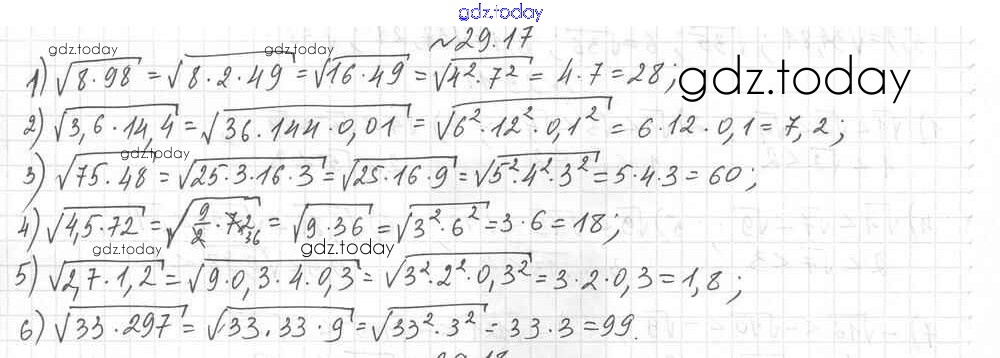 gdz.today
№29.17
gdz.today gdz.today
1) √8·98 = √8·2·49 = √16·49 = √4²·7² = 4·7 = 28; gdz.today
2) √3,6·14,4 = √36·144·0,01 = √6²·12²·0,1² = 6·12·0,1 = 7,2;
gdz.today
3) √75·48 = √25·3·16·3 = √25·16·9 = √5²·4²·3² = 5·4·3 = 60;
4) √4,5·72 = √9/2·72 36 = √9·36 = √3²·6² = 3·6 = 18;
gdz.today gdz.today
5) √2,7·1,2 = √9·0,3·4·0,3 = √3²·2²·0,3² = 3·2·0,3 = 1,8;
6) √33·297 = √33·33·9 = √33²·3² = 33·3 = 99.